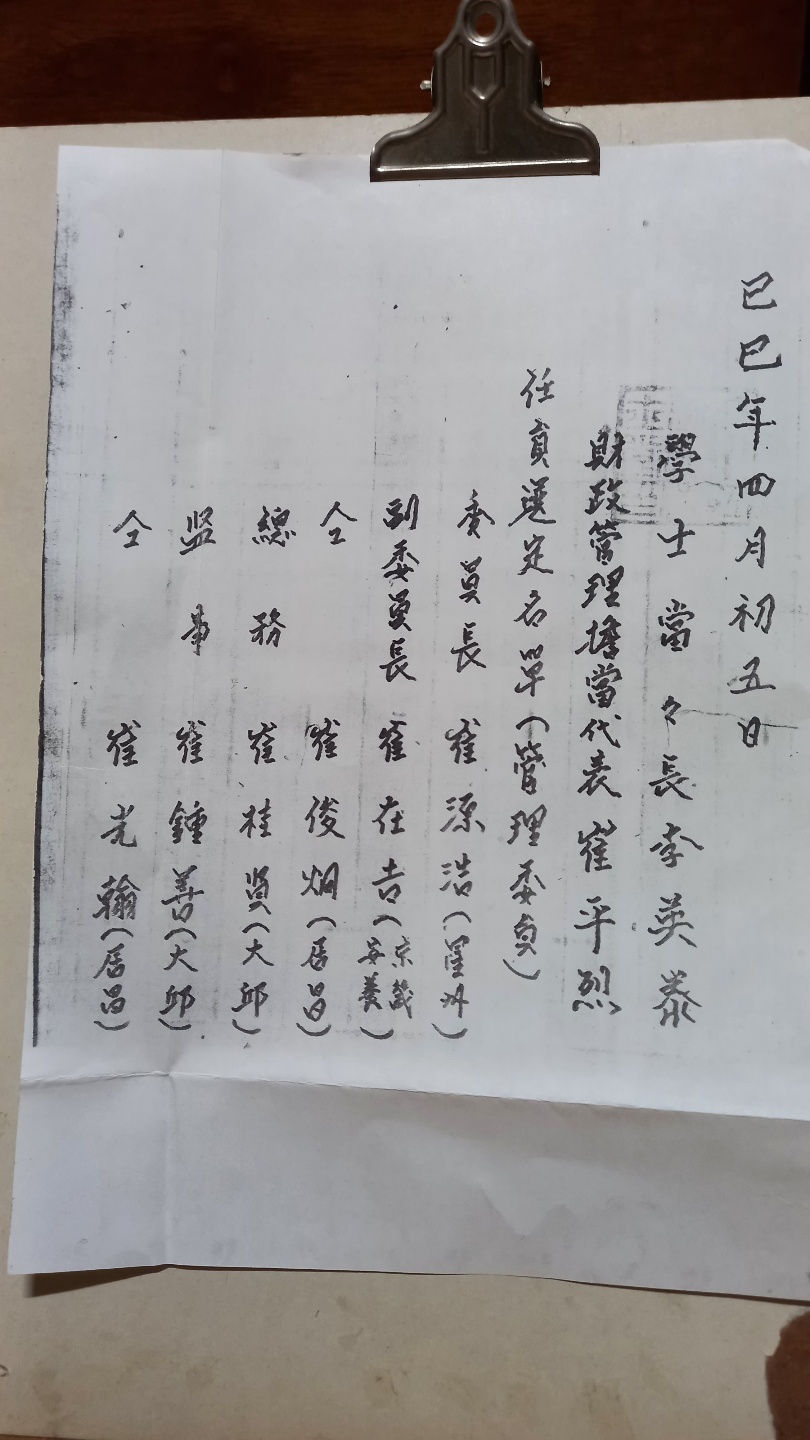 己巳年四月初五日
學士當々長李英泰
財政管理擔當代表崔平烈
任員選定名單(管理委員)
委員長 崔源浩(星州)
副委員長 崔在吉(京畿安養)
仝 崔俊炯(居昌)
總務 崔桂賢(大邱)
监事 崔鍾善(大邱)
仝 崔光翰(居昌)